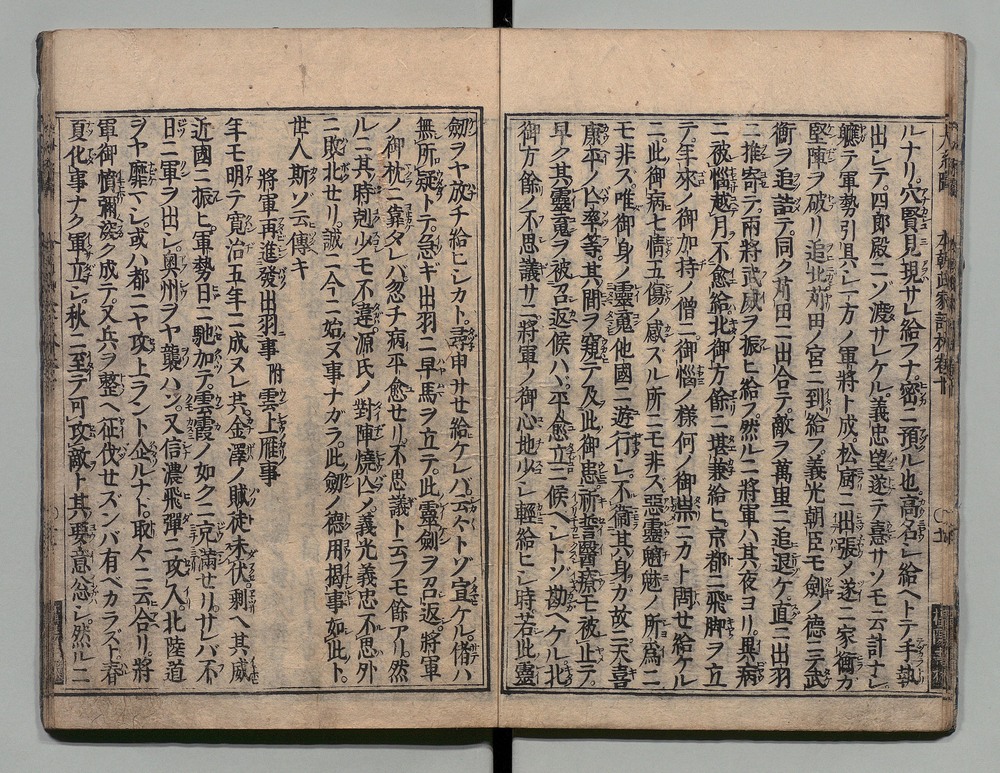 ルナリ。穴賢見現サレ給フナ。密ニ預ル也。高名シ給ヘトテ手執
出シテ。四郎殿ニゾ渡サレケル。義忠望遂テ喜サソモ云計ナシ。
軈テ軍勢引具シ一方ノ軍將ト成。松﨑ニ出張シ遂ニ家衡方
堅陣ヲ破リ。追北苅田ノ宮ニ到給フ。義光朝臣モ劍ノ德ニ武
衡ヲ追詰テ同ク苅田ニ出合テ。敵ヲ萬里ニ追退ケ。直ニ出羽
ニ推寄テ。兩將武威ヲ振ヒ給フ。然ルニ將軍ハ其夜ヨリ異病
ニ被惱越月不愈給北御方餘ニ堪兼給ヒ。京都ニ飛脚ヲ立
テ。年來ノ御加持ノ僧ニ御惱ノ樣何ノ御祟ニカト問セ給ケル
ニ。此御病七情五傷ノ感スル所ニモ非ス。惡靈魍魎ノ所爲ニ
モ非ス。唯御身ノ靈寬他國ニ遊行シ。不衞其身ヲ故ニ天喜
康平ノ人率等。其間ヲ窺テ及此御患。祈誓醫療モ被止テ。
早ク其靈寬ヲ被召返候ハヽ。平愈立ニ候ヘシトゾ勘ヘケル。北
御方餘ノ不思議サニ將軍ノ御心地少シ輕給ヒシ時。若此靈
劔ヲヤ放チ給ヒシカト。尋申サセ給ケレバ。云々トゾ宣ケル。偖ハ
無所疑トテ。急ギ出羽ニ早馬ヲ立テ。此靈劍ヲ召返。將軍
ノ御枕ニ靠タレバ忽チ病平愈セリ。不思議ト云フモ餘アリ。然
ルニ其時剋少モ不違。源氏ノ對陣燒亡ノ。義光義忠不思外
ニ敗北セリ。誠ニ今ニ始ヌ事ナガラ。此劍ノ德用揭事如此ト。
世人斯ゾ云傳キ
將軍再進發出羽事 附 雲上雁事
年モ明テ寬治五年ニ成ヌレ共。金澤ノ賊徒未伏。剩ヘ其威
近國ニ振ヒ。軍勢日ニ馳加テ。雲霞ノ如クニ充滿セリ。サレバ不
日ニ軍ヲ出シ。奥州ヲヤ襲ハン。又信濃飛彈ニ攻入。北陸道
ヲヤ靡マシ。或ハ都ニヤ攻上ラント企ルナド。取々ニ云合リ。將
軍御憤彌深ク成テ。又兵ヲ整ヘ征伐セズンバ有ベカラズト。春
夏化事ナク軍立シ。秋ニ至テ可攻敵ト其要意忩シ。然ルニ